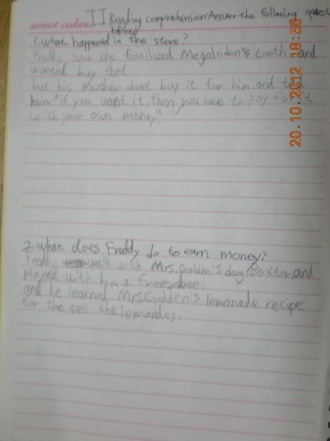 sweet cakes
II Reading comprehension: Answer the following
1. what happened in the store?
Fredy saw the Megalodon's tooth and
wanted buy that.
but his mother buy it for him and
him "if you want it, then you have to pay for it
with your own money"
2. what does Freddy do to earn money?
Fredy walk with Mrs. Golden's dog and
played with him a freezebee.
and he learned Mrs. Golden's lemonade recipe
for the sell the lemandes.
20.10.2012 18:56